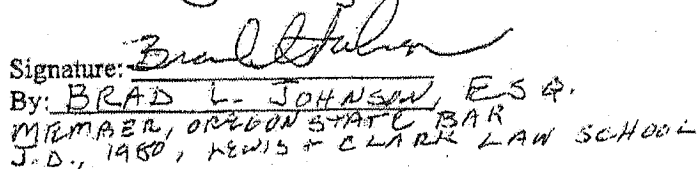 Signature:
By: BRAD L. JOHNSON, ESQ.
MEMBER, OREGON STATE BAR
J.D., 1980, LEWIS + CLARK LAW SCHOOL